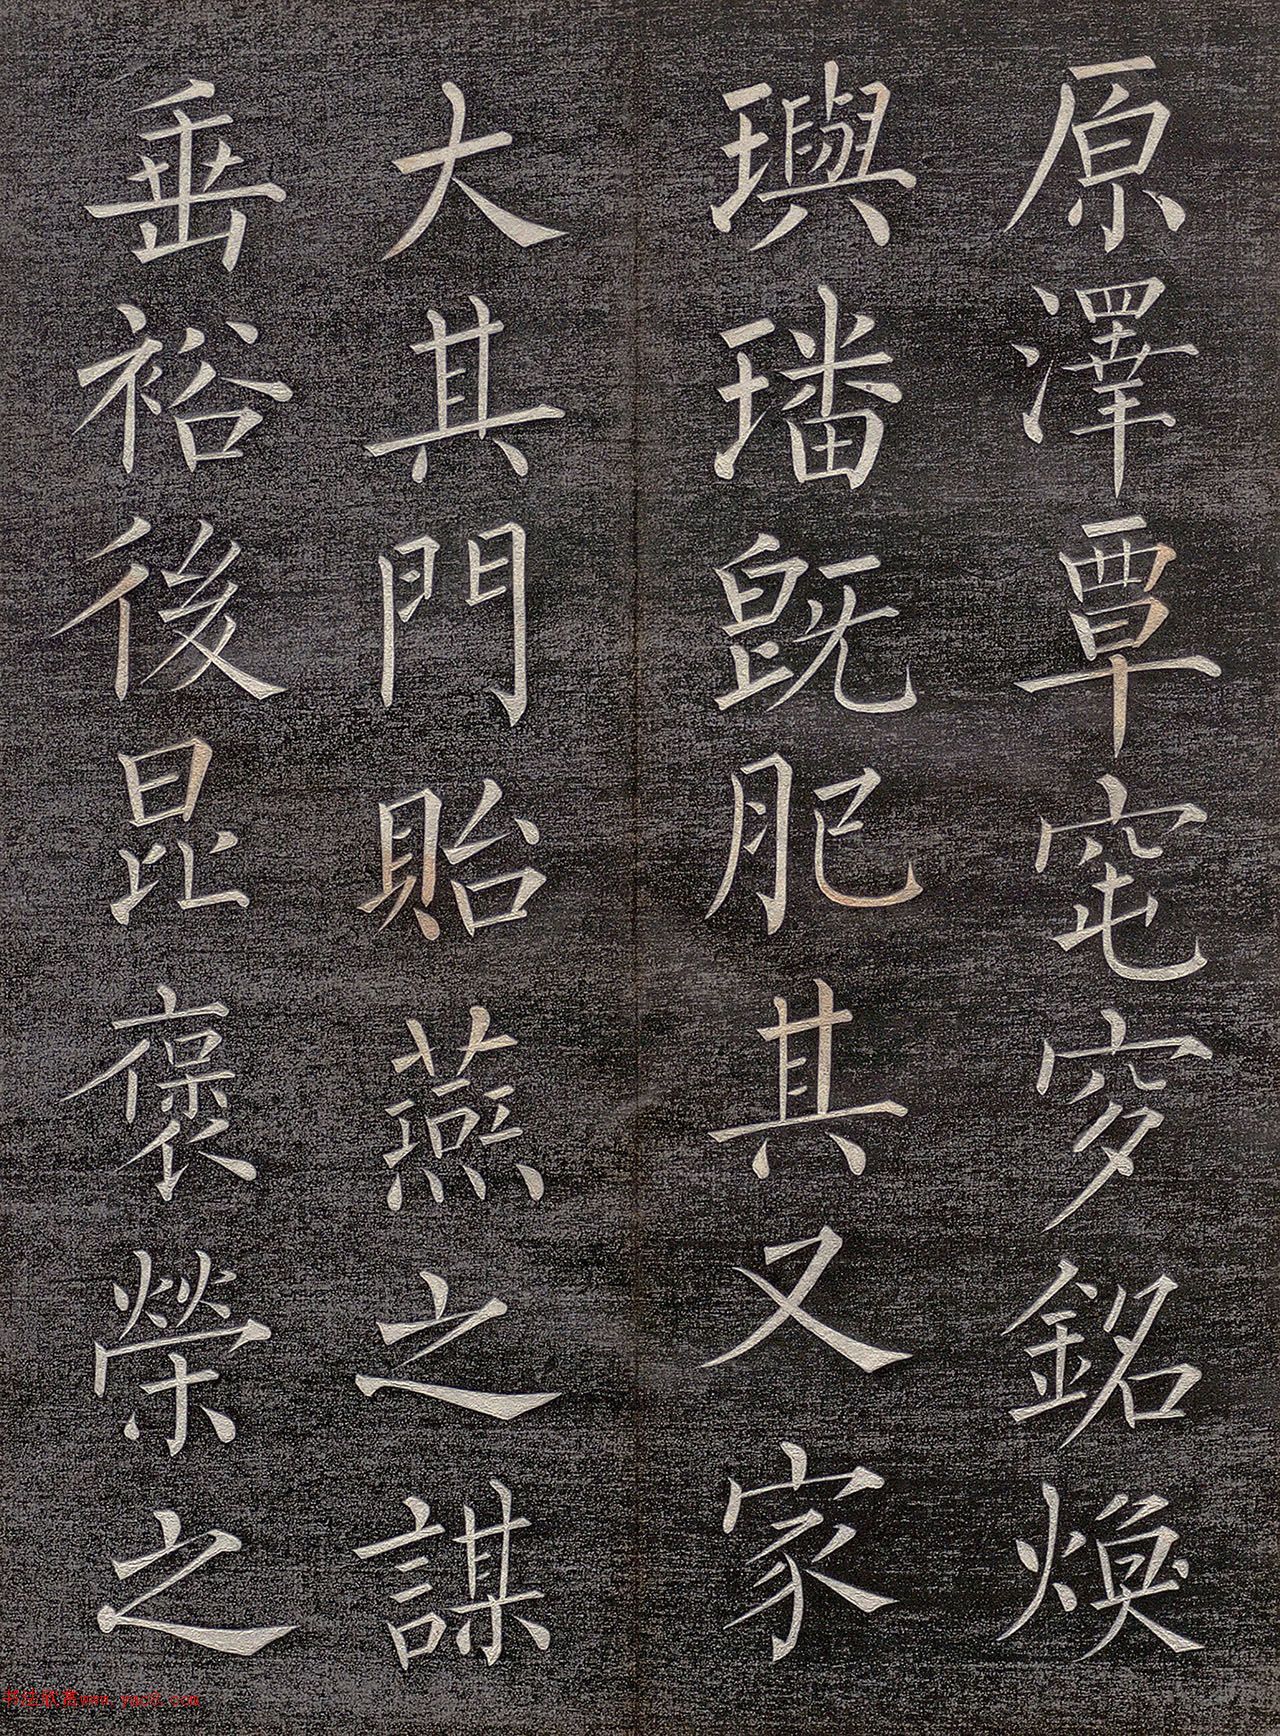 原澤覃窀穸銘煥
璵璠旣肥其又家
大其門貽燕之謀
垂裕後昆褒榮之